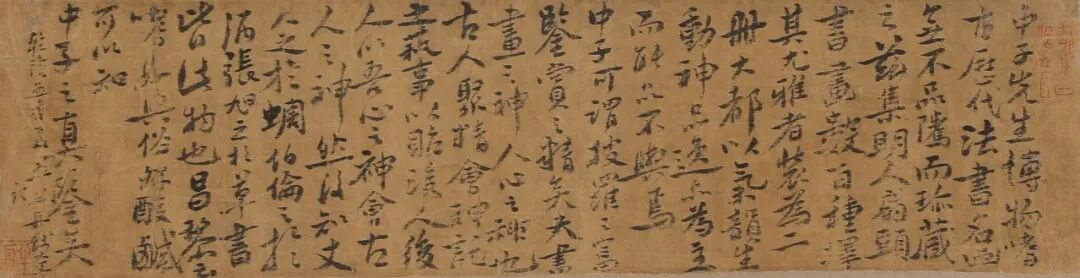 申子先生博物嗜
古歷代法書名畫
無不品隲而珍藏
之茲集明人扇頭
書畫數百種擇
其尤雅者裝為二
冊大都以氣韻生
動神品逸品為主
而能品不與焉
申子可謂搜羅之富
鑒賞之精矣夫書
畫之神人心之神也
古人聚精會神託
之藝事以貽後人後
人以吾心之神會古
人之神然後知丈
人之於蜩伯倫之於
酒張旭之於草書
皆此物也昌黎云
嗜好與俗殊酸鹹
可以知
申子之真鑒矣